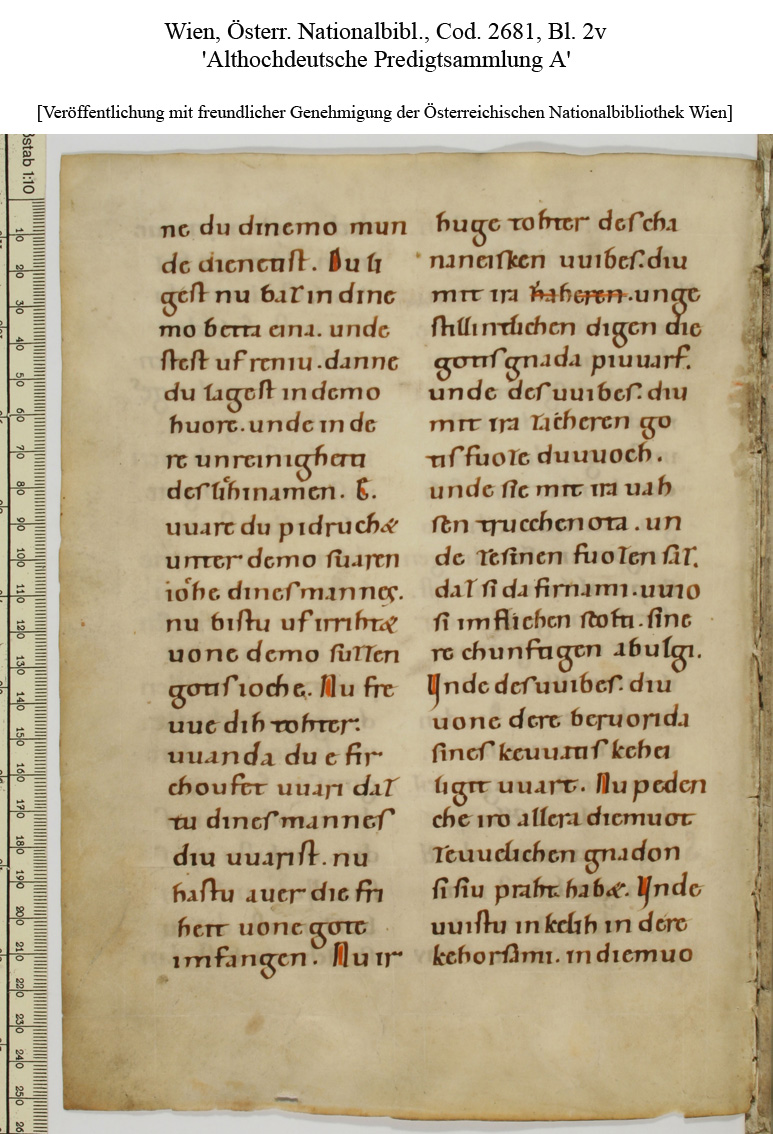 Wien, Österr. Nationalbibl., Cod. 2681, Bl. 2v
'Althochdeutsche Predigtsammlung A'
[Veröffentlichung mit freundlicher Genehmigung der Österreichischen Nationalbibliothek Wien]
ßstab 1:10
ne du dinemo mun
de dienetiſt. Du li
geſt nu baz in dine
mo betta eina. unde
ſteſt uf reniu. danne
du lagest in demo
huore. unde in de
re unreinigheta
deſ lihinamen. E.
uuare du pidruchæ
unter demo ſuaren
iohe dineſ manneſ.
nu biſtu uf irrihtæ
uone demo ſuzzen
gotiſ ioche. Nu fre
uue dih tohter.
uuanda du e fir
choufet uuari daz
tu dineſ manneſ
diu uuariſt. nu
haſtu auer die fri
heit uone gote
imfangen. Nu ir
huge tohter deſ cha
naneiſken uuibeſ. diu
mit ira haheren. unge
ſtillintlichen digen die
gotiſ gnada piuuarf.
unde deſ uuibeſ. diu
mit ira zacheren go
tiſ fuoze duuuoch.
unde ſie mit ira uah
ſen truccheno ta. un
de zeſinen fuozen ſaz.
daz ſi da firnami. uuio
ſi imfliehen ſcolta. ſine
re chunftigen abulgi.
Unde deſ uuibeſ. diu
uone dere beruorida
ſineſ keuuatiſ kehei
ligit uuart. Nu peden
che iro allera diemuot
zeuuelichen gnadon
ſi ſiu praht habæ. Unde
uuiſtu in kelih in dere
kehorſami. in diemuo
10
20
30
40
50
60
70
80
90
100
110
120
130
140
150
160
170
180
190
200
210
220
230
240
250
26